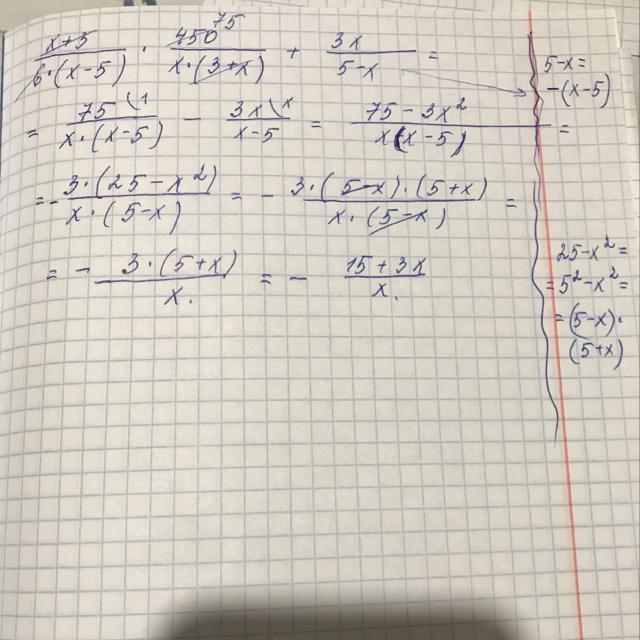 x+3/6·(x-5) · 450^75/x·(3+x) + 3x/5-x =
= 75\1/x·(x-5) - 3x\x/x-5 = 75-3x²/x(x-5) =
= -3·(25-x²)/x·(5-x) = - 3·(5-x)·(5+x)/x·(5-x) =
= - 3·(5+x)/x. = - 15+3x/x.
5-x=
-(x-5)
25-x²=
=5²-x²=
=(5-x)·
(5+x)